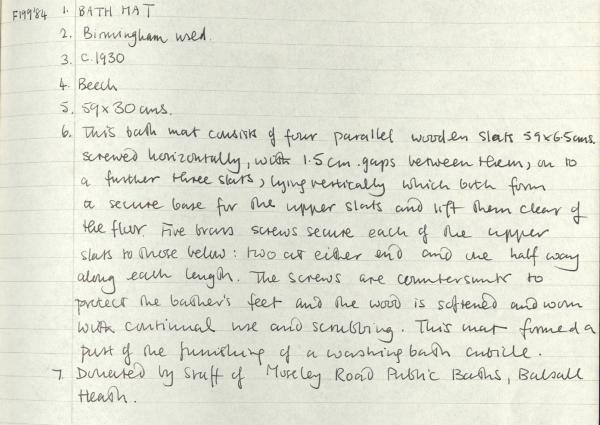 F199'84 1. BATH MAT
2. Birmingham used.
3. C.1930
4. Beech
5. 59 x 30 cms.
6. This bath mat consists of four parallel wooden slats 59x6.5cms.
screwed horizontally, with 1.5cm. gaps between them, on to
a further three slats, lying vertically which both form
a secure base for the upper slats and lift them clear of
the floor. Five brass screws secure each of the upper
slats to those below: two at either end and one half way
along each length. The screws are countersunk to
protect the bather's feet and the wood is softened and worn
with continual use and scrubbing. This mat formed a
part of the furnishing of a washing bath cubicle.
7. Donated by staff of Moseley Road Public Baths, Balsall
Heath.